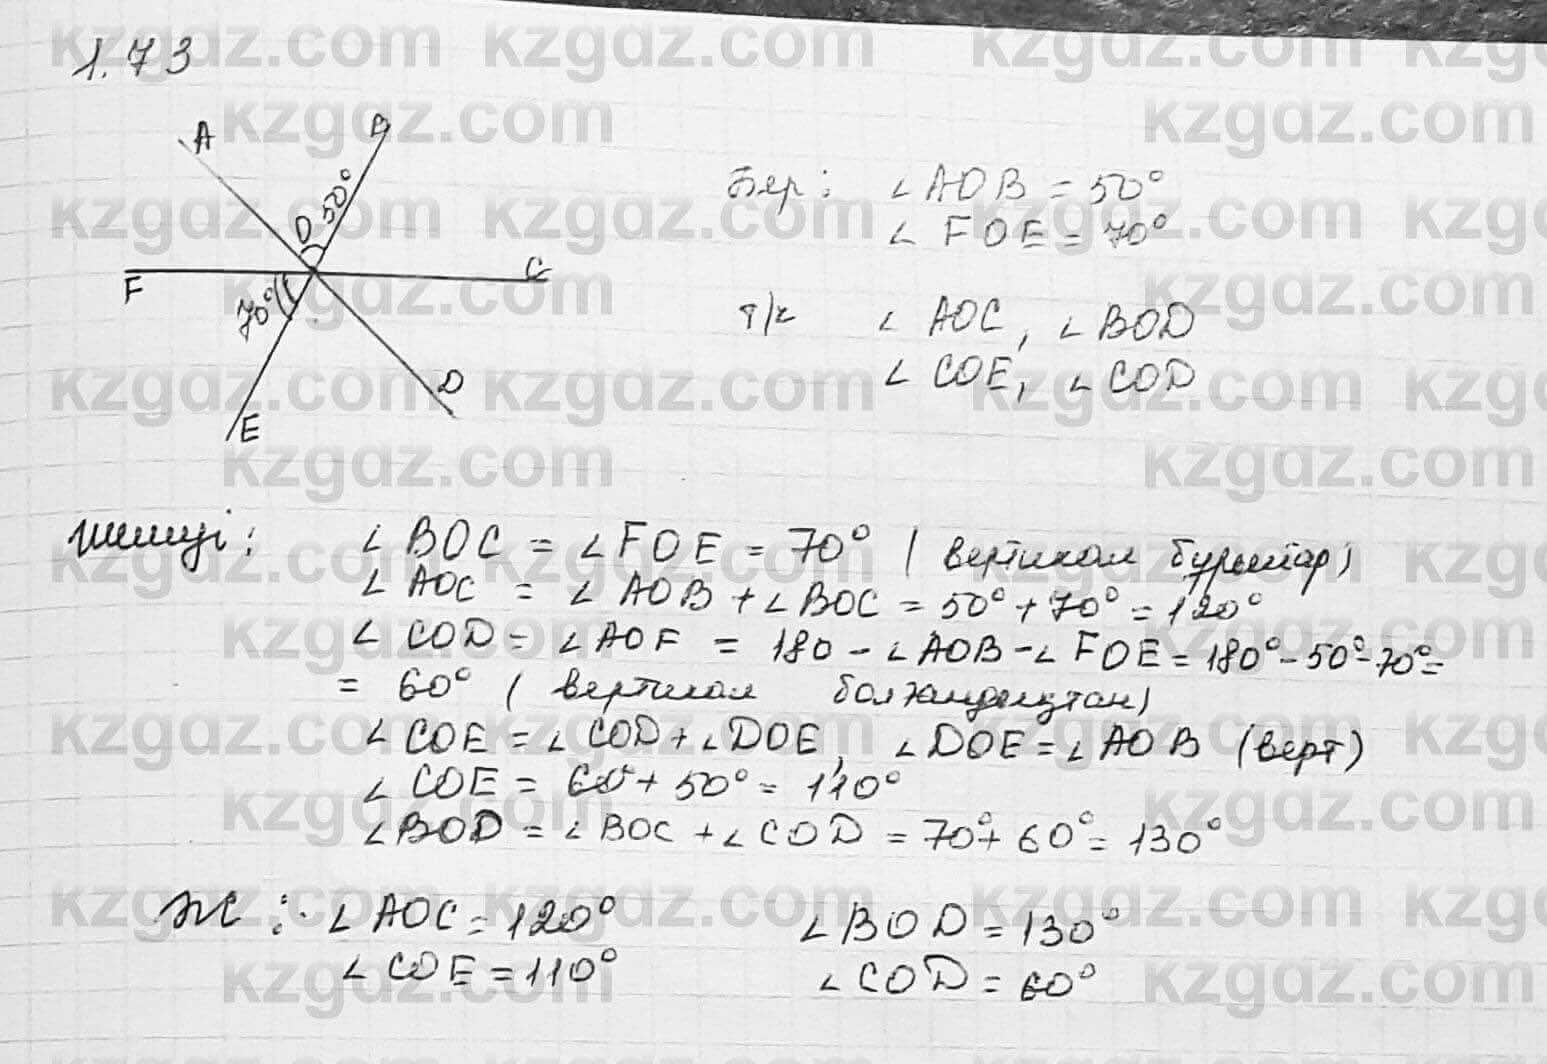 1.73
A
B
O 50°
F
C
70°
D
E
Бер: ∠AOB = 50°
∠FOE = 70°
т/к ∠AOC, ∠BOD
∠COE, ∠COD
Шешуі: ∠BOC = ∠FOE = 70° (вертикал бұрыштар)
∠AOC = ∠AOB + ∠BOC = 50° + 70° = 120°
∠COD = ∠AOF = 180 - ∠AOB - ∠FOE = 180° - 50° - 70° =
= 60° (вертикал болғандықтан)
∠COE = ∠COD + ∠DOE, ∠DOE = ∠AOB (верт)
∠COE = 60° + 50° = 110°
∠BOD = ∠BOC + ∠COD = 70° + 60° = 130°
Ж: ∠AOC = 120° ∠BOD = 130°
∠COE = 110° ∠COD = 60°
kzgaz.com